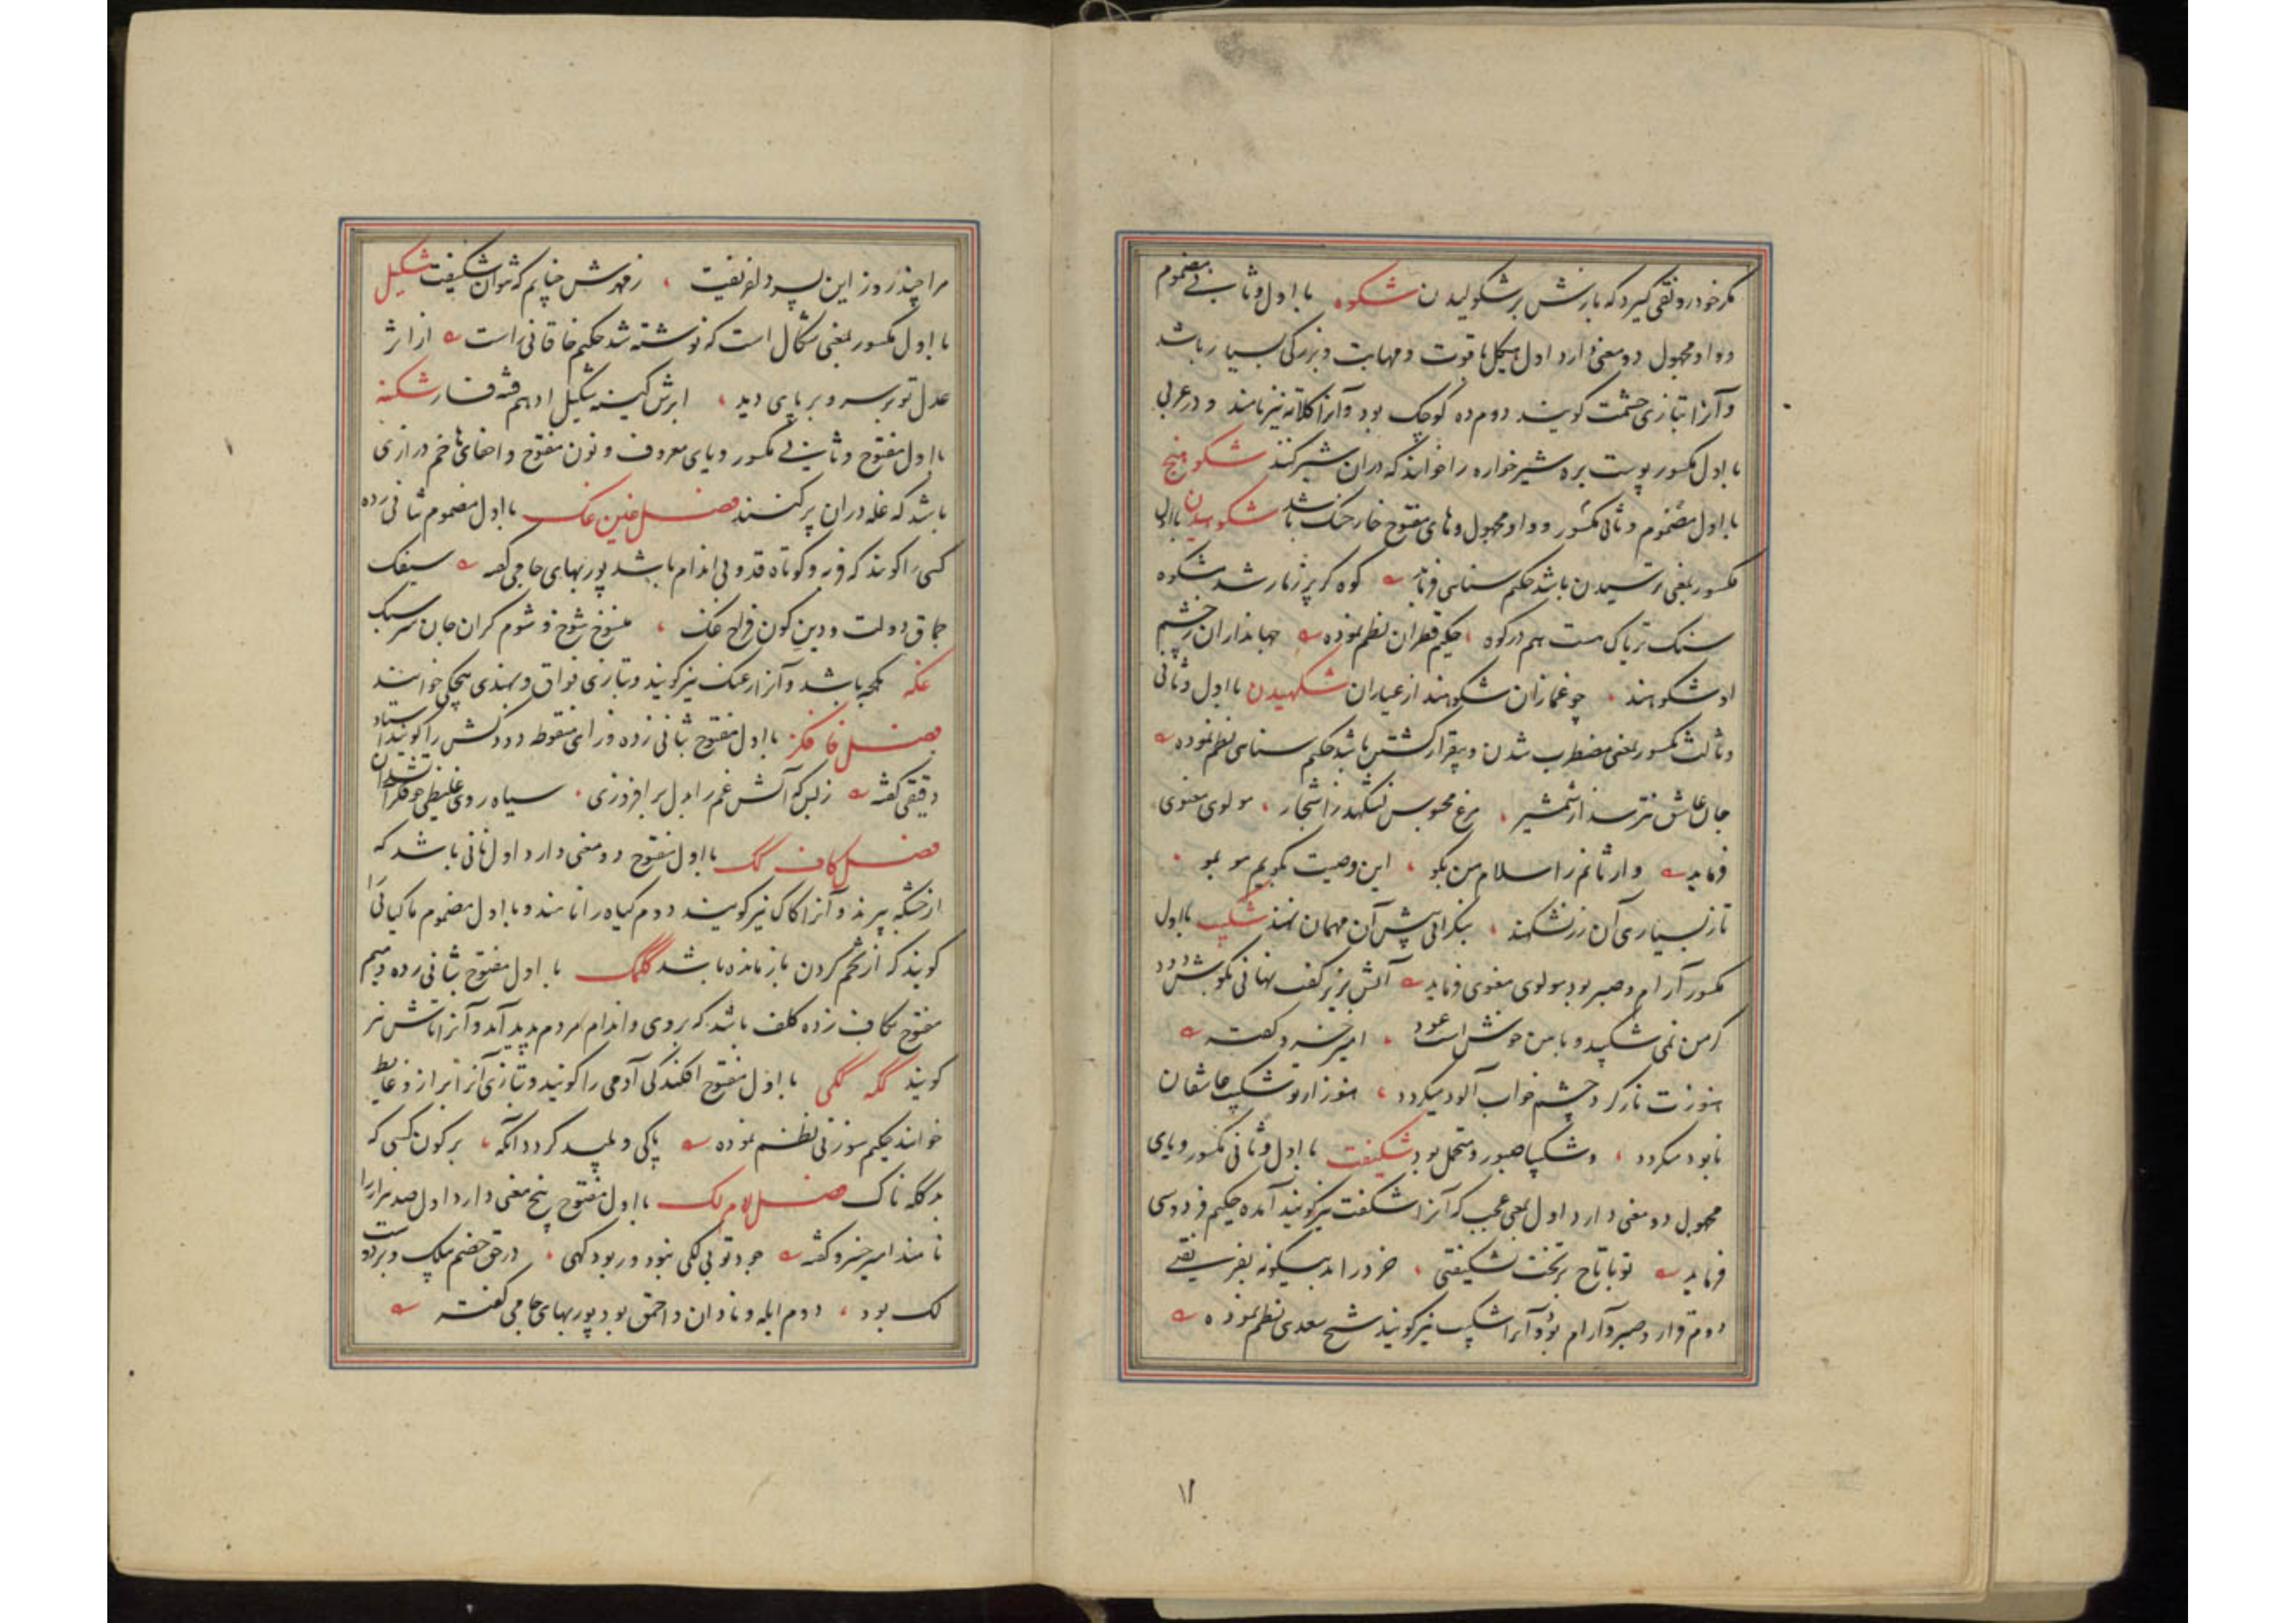 مکر خود رونقی گیرد که بارش بر شکولیدن شکوه با اول و ثانی مضموم
و واو مجهول دو معنی دارد اول هیکل با قوت و مهابت و بزرگی بسیار باشد
و آنرا بتازی حشمت گویند دوم ده کوچک بود و آنرا کلاته نیز نامند و در عربی
با اول مکسور پوست بره شیرخواره را خوانند که در آن شیر کنند شکوهنج
با اول مضموم و ثانی مکسور و واو مجهول و های مفتوح خار خنک باشد شکوهیدن با اول
مکسور بمعنی ترسیدن باشد حکیم سنائی فرماید کوه کر پر ز مار شد مشکوه
سنک تریاک هست هم در کوه حکیم قطران نظم نموده جهانداران ز خشم
او شکوهند چو غمازان شکوهند از عیاران شکهیدن با اول و ثانی
و ثالث مکسور بمعنی مضطرب شدن و بیقرار گشتن باشد حکیم سنائی نظم نموده
جان عاشق نترسد از شمشیر مرغ محبوس نشکهد ز اشجار مولوی معنوی
فرماید وارثانم را سلام من بکو این وصیت بکویم مو بمو
تا ز بسیاری آن زر نشکهند بیکرانی پیش آن مهمان نهند شکیب با اول
مکسور آرام و صبر بود مولوی معنوی فرماید آتش بزیر کف نهانی بکوش
از من نمی شکیبد و با من خوش است عود امیر خسرو گفته
هنوزت ناز گرد چشم خواب آلود میکردد هنوز از تو شکیب عاشقان
نابود میکردد و شکیبا صبور و متحمل بود شکیفت با اول و ثانی مکسور و یای
مجهول دو معنی دارد اول بمعنی عجب که آنرا شکفت نیز گویند آمده حکیم فردوسی
فرماید تو با تاج بر تخت نشکیفتی خرد را بدینگونه بفریفتی
دوم قرار و صبر و آرام بود و آنرا شکیب نیز گویند شیخ سعدی نظم نموده
۱۱
مرا چند روز این پسر دل فریفت ز مهرش چنانم که نتوان شکیفت شکیل
با اول مکسور بمعنی شکال است که نوشته شد حکیم خاقانی راست از اثر
عدل تو بر سر و بر پای دید ابرش کینه شکیل ادهم فتنه فسار شکنه
با اول مفتوح و ثانی مکسور و یای معروف و نون مفتوح و اخفای ها خم درازی
باشد که غله در آن پر کنند فصل غین غک با اول مضموم بثانی زده
کسی را گویند که فربه و کوتاه قد و بی اندام باشد پوربهای جامی گفته سیفک
جماق دولت و دین کون فراخ غک منسوخ شوخ و شوم گران جان سر سبک
غکه هکچه باشد و آنرا زغنک نیز گویند و بتازی فواق و بهندی هچکی خوانند
فصل فا فکز با اول مفتوح بثانی زده و زای منقوطه دودکش را گویند استاد
دقیقی گفته ز بس که آتش غم را بدل بر افروزی سیاه روی غلیظی چو فکز آتشدان
فصل کاف کک با اول مفتوح دو معنی دارد اول نانی باشد که
از خشکه پزند و آنرا کاک نیز گویند دوم گیاه را نامند و با اول مضموم ماکیانی را
گویند که از تخم کردن بازمانده باشد ککمک با اول مفتوح بثانی زده و میم
مفتوح بکاف زده کلف باشد که بر روی و اندام مردم پدید آمد و آنرا تاش نیز
گویند ککه ککی با اول مفتوح افکندگی آدمی را گویند و بتازی آنرا براز و غایط
خوانند حکیم سوزنی نظم نموده پاکی و پلید گردد آنکه بر کون کسی که
بد ککه ناک فصل لام لک با اول مفتوح پنج معنی دارد اول صد هزار را
نامند امیر خسرو گفته جود تو بی لکی نبود ور بود کهی در حق خصم ملک و برده است
لک بود دوم ابله و نادان و احمق بود پوربهای جامی گفته